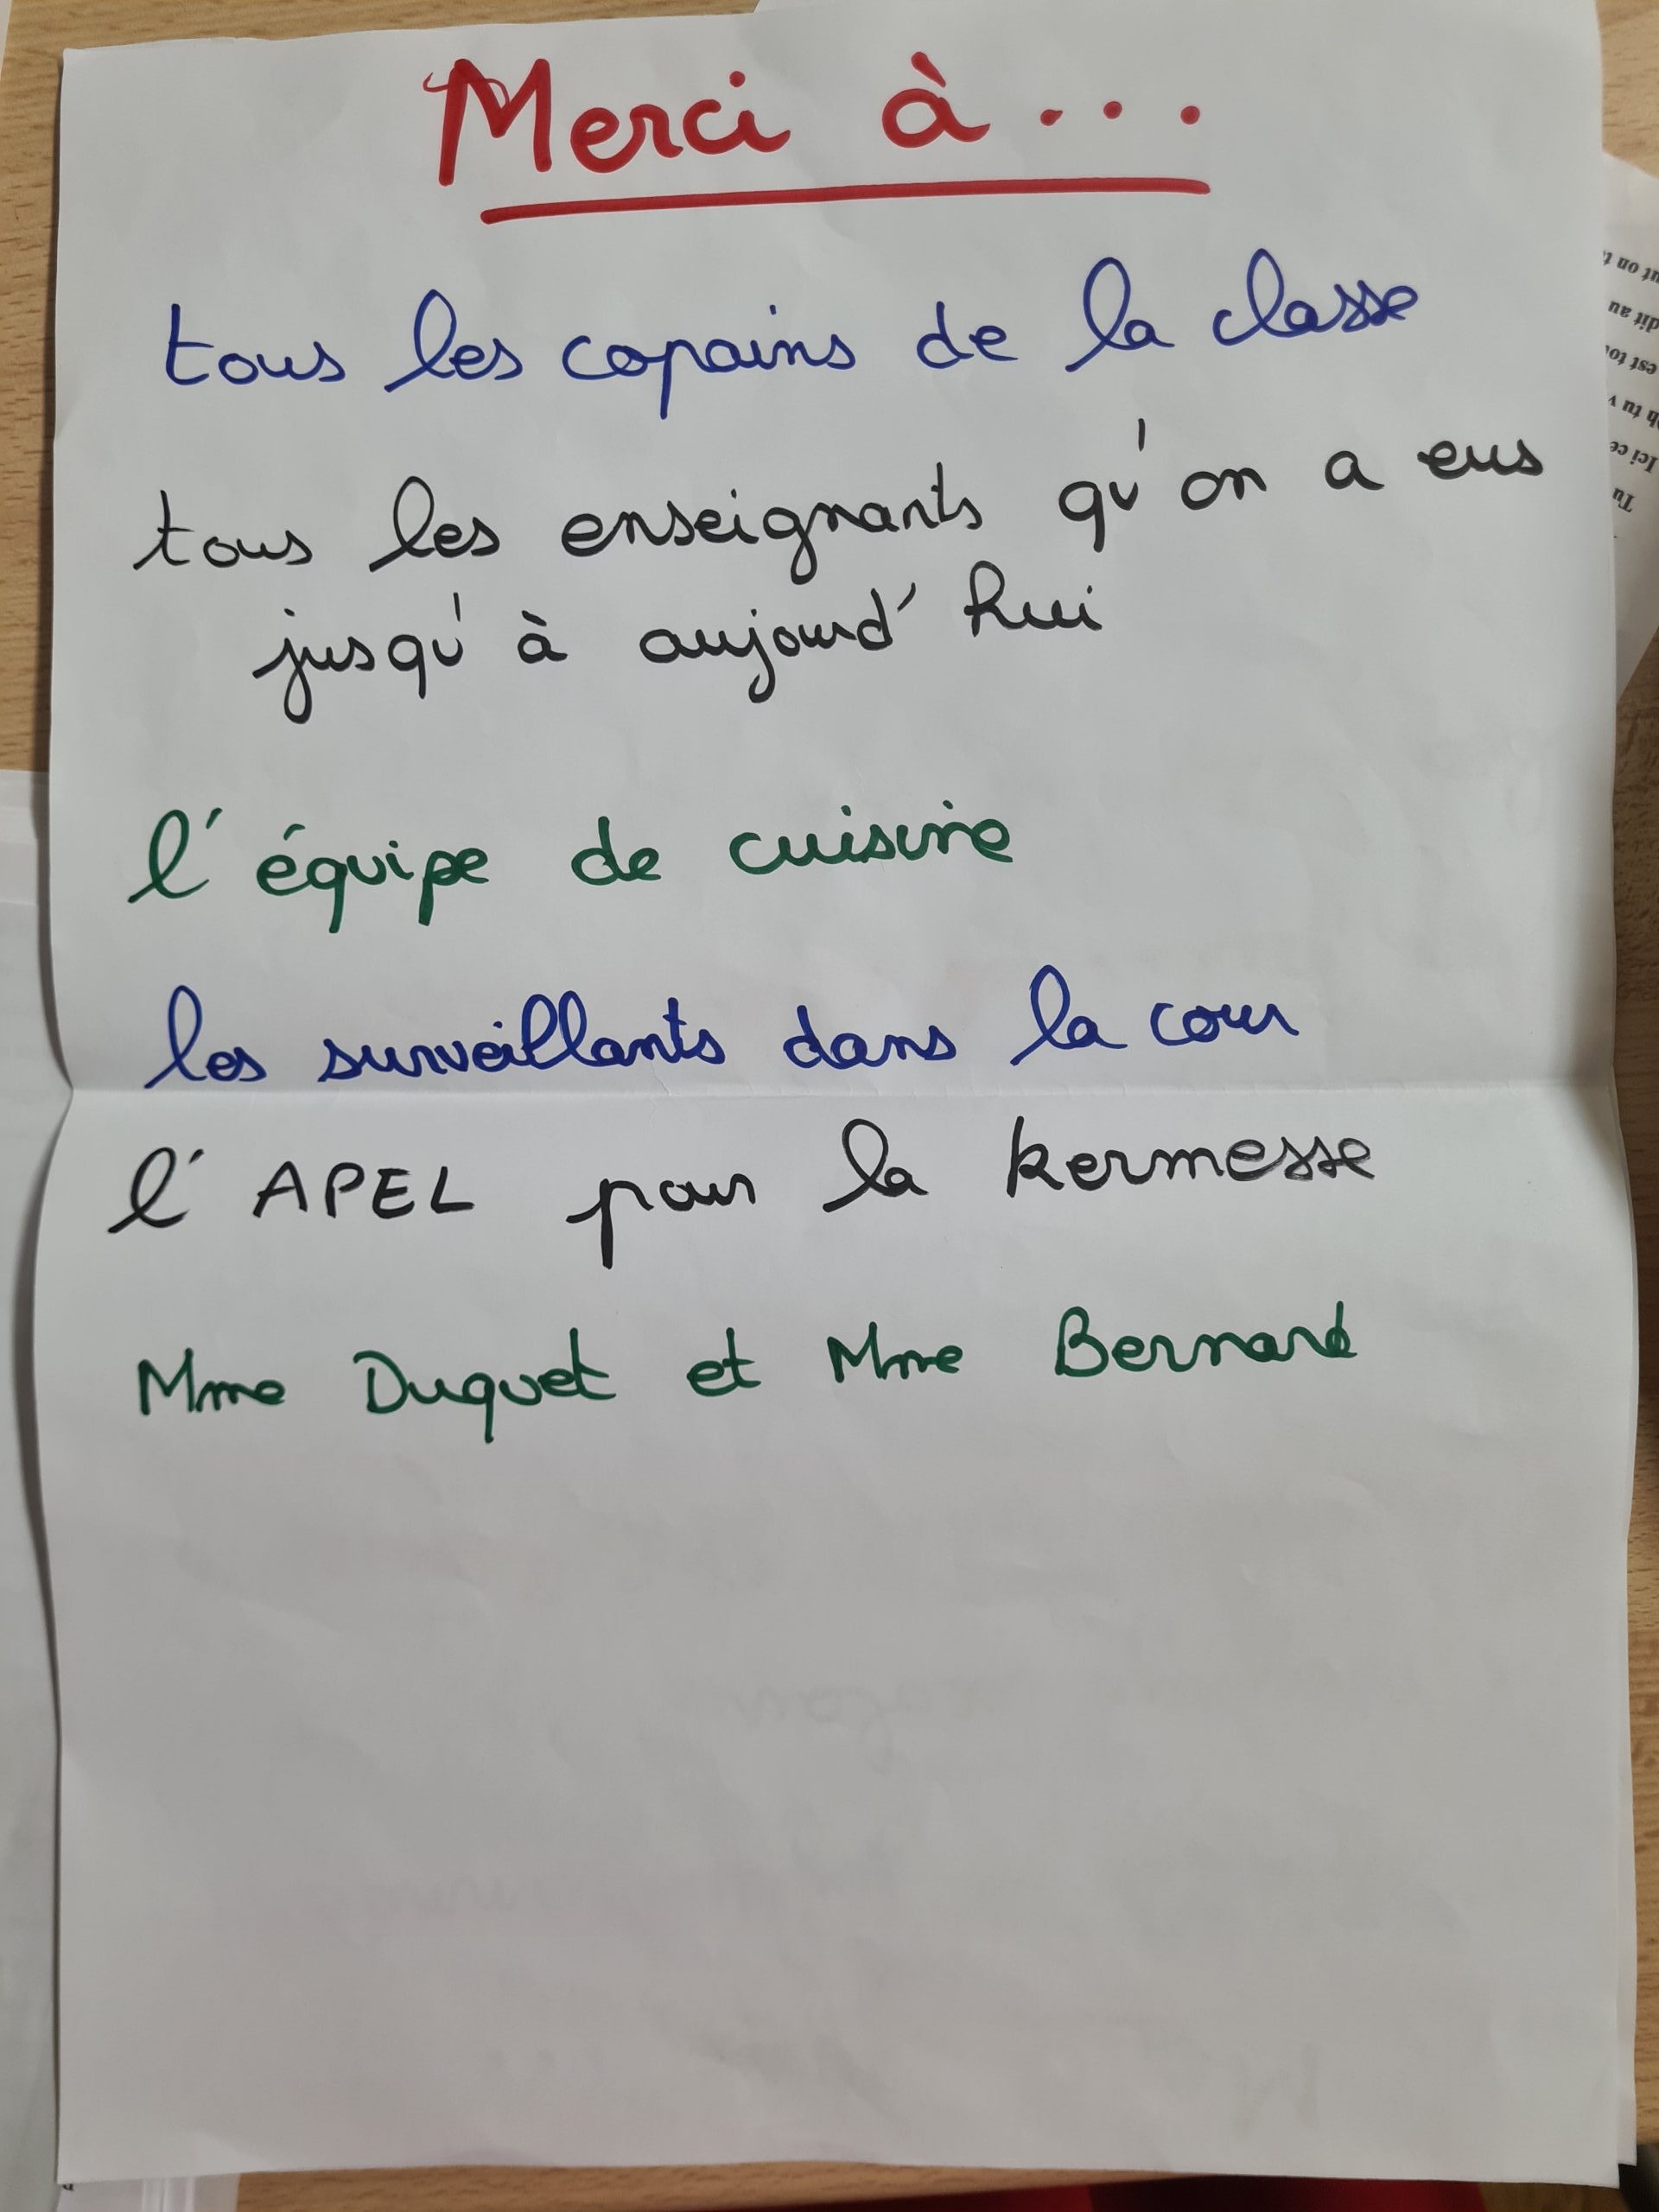 Merci à...
tous les copains de la classe
tous les enseignants qu'on a eus
jusqu'à aujourd'hui
l'équipe de cuisine
les surveillants dans la cour
l'APEL pour la kermesse
Mme Duquet et Mme Bernard
ut on t
dit au
est tou
oh tu v
Ici ce
Tu